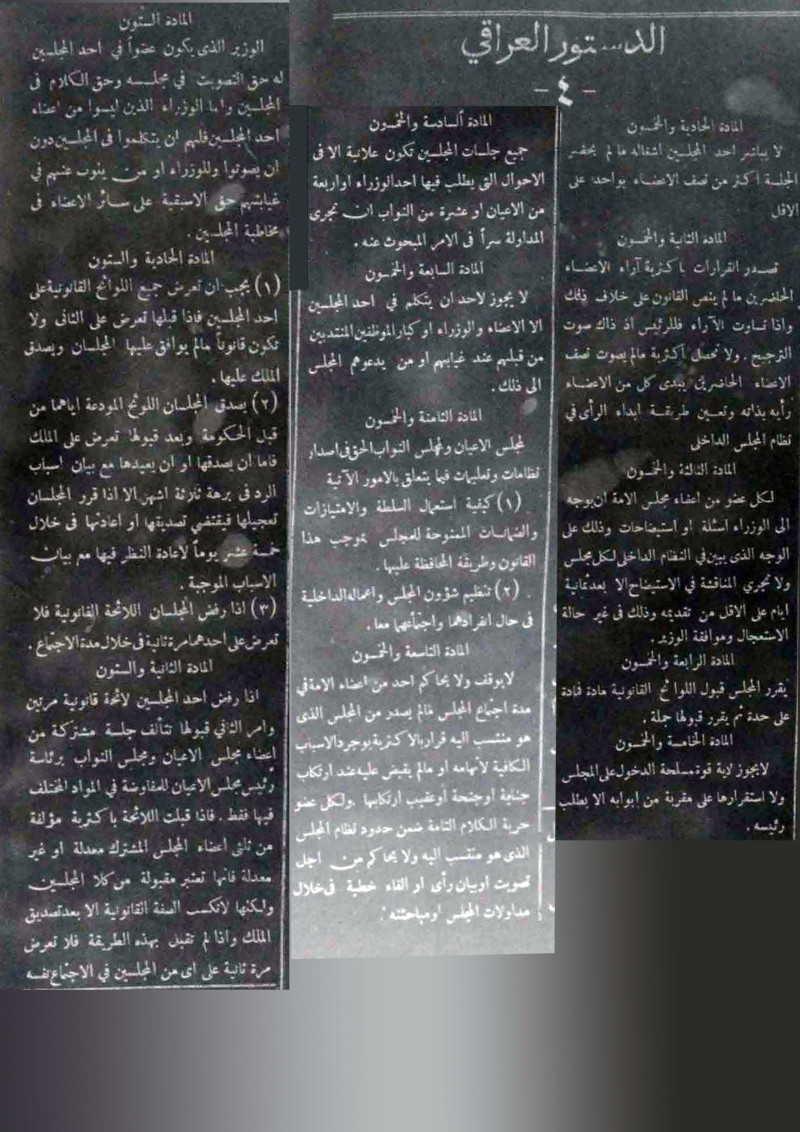 الدستور العراقي
- ٤ -
المادة الحادية والخمسون
لا يباشر احد المجلسين اشغاله ما لم يحضر
الجلسة اكثر من نصف الاعضاء بواحد على
الاقل
المادة الثانية والخمسون
تصدر القرارات باكثرية آراء الاعضاء
الحاضرين ما لم ينص القانون على خلاف ذلك
واذا تساوت الآراء فللرئيس اذ ذاك صوت
الترجيح . ولا تحصل اكثرية مالم يصوت نصف
الاعضاء الحاضرين يبدى كل من الاعضاء
رأيه بذاته وتعيين طريقة ابداء الرأى في
نظام المجلس الداخلى
المادة الثالثة والخمسون
لكل عضو من اعضاء مجلس الامة ان يوجه
الى الوزراء اسئلة او استيضاحات وذلك على
الوجه الذى يبين في النظام الداخلى لكل مجلس
ولا تجري المناقشة في الاستيضاح الا بعد ثمانية
ايام على الاقل من تقديمه وذلك فى غير حالة
الاستعجال وموافقة الوزير .
المادة الرابعة والخمسون
يقرر المجلس قبول اللوائح القانونية مادة فمادة
على حدة ثم يقرر قبولها جملة .
المادة الخامسة والخمسون
لا يجوز لاية قوة مسلحة الدخول على المجلس
ولا استقرارها على مقربة من ابوابه الا بطلب
رئيسه .
المادة السادسة والخمسون
جميع جلسات المجلسين تكون علانية الا فى
الاحوال التى يطلب فيها احد الوزراء او اربعة
من الاعيان او عشرة من النواب ان تجرى
المداولة سراً فى الامر المبحوث عنه .
المادة السابعة والخمسون
لا يجوز لاحد ان يتكلم في احد المجلسين
الا الاعضاء والوزراء او كبار الموظفين المنتدبين
من قبلهم عند غيابهم او من يدعوهم المجلس
الى ذلك .
المادة الثامنة والخمسون
لمجلس الاعيان ولمجلس النواب الحق فى اصدار
نظامات وتعليمات فيما يتعلق بالامور الآتية
(١) كيفية استعمال السلطة والامتيازات
والضمانات الممنوحة للمجلس بموجب هذا
القانون وطريقة المحافظة عليها .
(٢) تنظيم شؤون المجلس واعماله الداخلية
فى حال انفرادهما واجتماعهما معا .
المادة التاسعة والخمسون
لا يوقف ولا يحاكم احد من اعضاء الامة في
مدة اجتماع المجلس مالم يصدر من المجلس الذى
هو منتسب اليه قرار بالاكثرية بوجود الاسباب
الكافية لاتهامه او مالم يقبض عليه عند ارتكاب
جناية او جنحة أو عقيب ارتكابها . ولكل عضو
حرية الكلام التامة ضمن حدود نظام المجلس
الذى هو منتسب اليه ولا يحاكم من اجل
تصويت او بيان رأى او القاء خطبة فى خلال
مداولات المجلس او مباحثته .
المادة الستون
الوزير الذى يكون عضواً في احد المجلسين
له حق التصويت في مجلسه وحق الكلام فى
المجلسين واما الوزراء الذين ليسوا من اعضاء
احد المجلسين فلهم ان يتكلموا فى المجلسين دون
ان يصوتوا وللوزراء او من ينوب عنهم في
غيابهم حق الاسبقية على سائر الاعضاء فى
مخاطبة المجلسين .
المادة الحادية والستون
(١) يجب ان تعرض جميع اللوائح القانونية على
احد المجلسين فاذا قبلها تعرض على الثانى ولا
تكون قانوناً مالم يوافق عليها المجلسان ويصدق
الملك عليها .
(٢) يصدق المجلسان اللوئح المودعة اياهما من
قبل الحكومة وبعد قبولها تعرض على الملك
فاما ان يصدقها او ان يعيدها مع بيان اسباب
الرد فى برهة ثلاثة اشهر الا اذا قرر المجلسان
تعجيلها فيقتضي تصديقها او اعادتها فى خلال
خمسة عشر يوماً لاعادة النظر فيها مع بيان
الاسباب الموجبة .
(٣) اذا رفض المجلسان اللائحة القانونية فلا
تعرض على احدهما مرة ثانية فى خلال مدة الاجتماع .
المادة الثانية والستون
اذا رفض احد المجلسين لائحة قانونية مرتين
واصر الثاني قبولها تتألف جلسة مشتركة من
اعضاء مجلس الاعيان ومجلس النواب برئاسة
رئيس مجلس الاعيان للمفاوضة في المواد المختلف
فيها فقط . فاذا قبلت اللائحة باكثرية مؤلفة
من ثلثى اعضاء المجلس المشترك معدلة او غير
معدلة فانها تعتبر مقبولة من كلا المجلسين
ولكنها لا تكسب الصفة القانونية الا بعد تصديق
الملك واذا لم تقبل بهذه الطريقة فلا تعرض
مرة ثانية على اى من المجلسين في الاجتماع نفسه